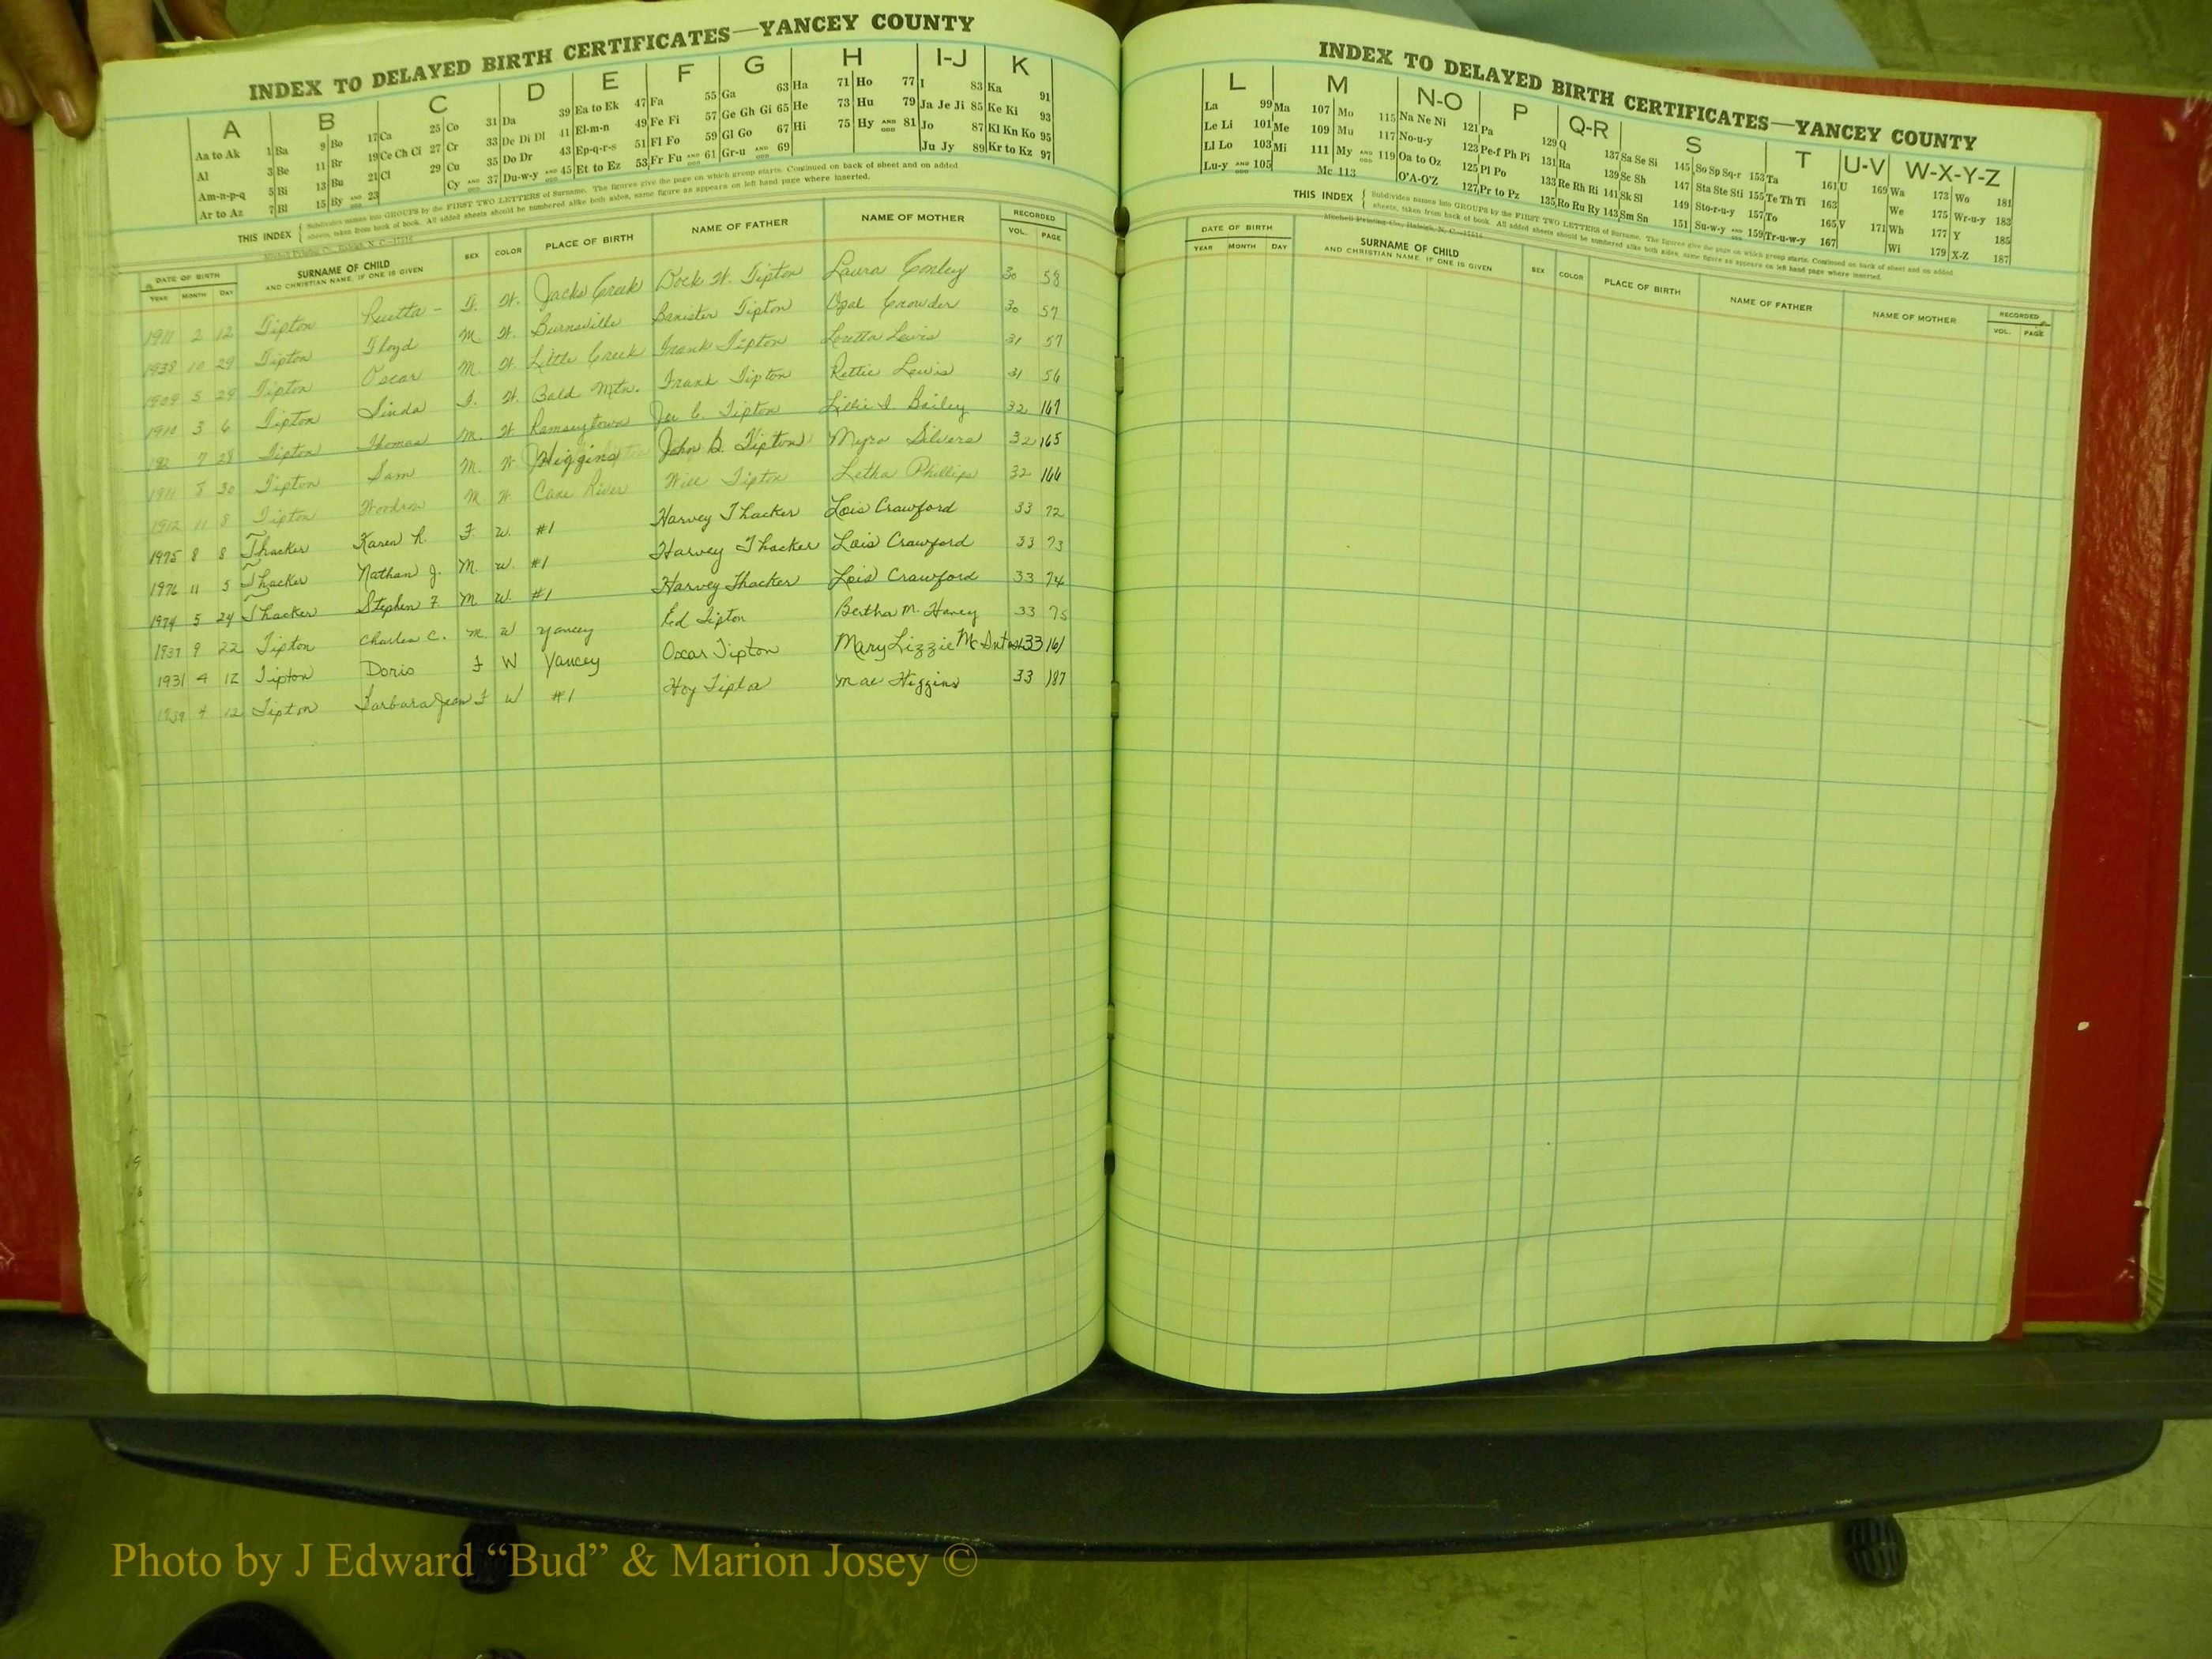 INDEX TO DELAYED BIRTH CERTIFICATES—YANCEY COUNTY
A B C D E F G H I-J K
Aa to Ak 1 Ba 9 Bo 17 Ca 25 Co 31 Da 39 Ea to Ek 47 Fa 55 Ga 63 Ha 71 Ho 77 I 83 Ka 91
Al 3 Be 11 Br 19 Ce Ch Ci 27 Cr 33 De Di Dl 41 El-m-n 49 Fe Fi 57 Ge Gh Gi 65 He 73 Hu 79 Ja Je Ji 85 Ke Ki 93
Am-n-p-q 5 Bi 13 Bu 21 Cl 29 Cu 35 Do Dr 43 Ep-q-r-s 51 Fl Fo 59 Gl Go 67 Hi 75 Hy AND ODD 81 Jo 87 Kl Kn Ko 95
Ar to Az 7 Bl 15 By AND ODD 23 Cy AND ODD 37 Du-w-y AND ODD 45 Et to Ez 53 Fr Fu AND ODD 61 Gr-u AND ODD 69 Ju Jy 89 Kr to Kz 97
THIS INDEX { Subdivides names into GROUPS by the FIRST TWO LETTERS of Surname. The figures give the page on which group starts. Continued on back of sheet and on added
sheets, taken from back of book. All added sheets should be numbered alike both sides, same figure as appears on left hand page where inserted.
Mitchell Printing Co., Raleigh, N. C.
DATE OF BIRTH SURNAME OF CHILD SEX COLOR PLACE OF BIRTH NAME OF FATHER NAME OF MOTHER RECORDED
YEAR MONTH DAY AND CHRISTIAN NAME, IF ONE IS GIVEN VOL. PAGE
1911 2 12 Tipton Ruetta - F. W. Jacks Creek Dock W. Tipton Laura Conley 30 58
1938 10 29 Tipton Floyd M W. Burnsville Banister Tipton Opal Crowder 30 57
1909 5 29 Tipton Oscar M. W. Little Creek Frank Tipton Loretta Lewis 31 57
1910 3 6 Tipton Linda F. W. Bald Mtn. Frank Tipton Rettie Lewis 31 56
7 28 Tipton Thomas M. W. Ramseytown C. Tipton Bailey 32 167
1911 8 30 Tipton Sam M. W. Higgins John B. Tipton Myra Silvers 32 165
1912 11 8 Tipton Woodrow M W. Cane River Will Tipton Letha Phillips 32 166
1975 8 8 Thacker Karen R. F. W. #1 Harvey Thacker Lois Crawford 33 72
1976 11 5 Thacker Nathan J. M. W. #1 Harvey Thacker Lois Crawford 33 73
1974 5 24 Thacker Stephen F. M W. #1 Harvey Thacker Lois Crawford 33 74
1937 9 22 Tipton Charles C. M. W Yancey Ed Tipton Bertha M. Haney 33 75
1931 4 12 Tipton Doris F W Yancey Oscar Tipton Mary Lizzie McIntosh 33 161
1939 4 12 Tipton Barbara Jean F W #1 Hoy Tipton Mae Higgins 33 187
INDEX TO DELAYED BIRTH CERTIFICATES—YANCEY COUNTY
L M N-O P Q-R S T U-V W-X-Y-Z
La 99 Ma 107 Mo 115 Na Ne Ni 121 Pa 129 Q 137 Sa Se Si 145 So Sp Sq-r 153 Ta 161 U 169 Wa 173 Wo 181
Le Li 101 Me 109 Mu 117 No-u-y 123 Pe-f Ph Pi 131 Ra 139 Sc Sh 147 Sta Ste Sti 155 Te Th Ti 163 We 175 Wr-u-y 183
Ll Lo 103 Mi 111 My AND ODD 119 Oa to Oz 125 Pl Po 133 Re Rh Ri 141 Sk Sl 149 Sto-r-u-y 157 To 165 V 171 Wh 177 Y 185
Lu-y AND ODD 105 Mc 113 O'A-O'Z 127 Pr to Pz 135 Ro Ru Ry 143 Sm Sn 151 Su-w-y AND ODD 159 Tr-u-w-y 167 Wi 179 X-Z 187
THIS INDEX { Subdivides names into GROUPS by the FIRST TWO LETTERS of Surname. The figures give the page on which group starts. Continued on back of sheet and on added
sheets, taken from back of book. All added sheets should be numbered alike both sides, same figure as appears on left hand page where inserted.
Mitchell Printing Co., Raleigh, N. C.
DATE OF BIRTH SURNAME OF CHILD SEX COLOR PLACE OF BIRTH NAME OF FATHER NAME OF MOTHER RECORDED
YEAR MONTH DAY AND CHRISTIAN NAME, IF ONE IS GIVEN VOL. PAGE
Photo by J Edward “Bud” & Marion Josey ©